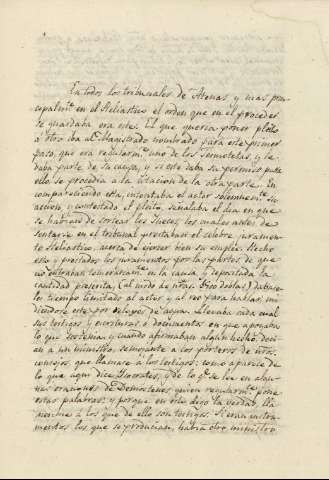 En todos los tribunales de Atenas y mas prin-
cipalm.te en el Heliastico el orden que en el proceder
se guardaba era este. El que queria poner pleito
à otro iba al Magistrado nombrado para este primer
paso, que era regularm.te uno de los Temotetas, y le
daba parte de su causa, y si este daba su permiso para
ello se procedia a la citacion de la otra parte. En
compareciendo esta, intentaba el actor solemnem.te su
accion y contestado el pleito, señalaba el dia en que
se habian de sortear los Jueces, los cuales antes de
sentarse en el tribunal prestaban el celebre juramento
Heliastico, acerca de ejercer bien su empleo. Hecho
esto y prestados los juramentos por las partes de que
no entraban temerariam.te en la causa, y depositada la
cantidad presenta, (al modo de nras. doblas) dabase
los tiempo limitado al actor y al reo para hablar, mi
diendose este por reloxes de agua. Llevaba cada cual
sus testigos y escrituras ò documentos en que apoyaba
lo que decia, y cuando afirmaban algun hecho decian
a un ministro, semejante a los porteros de nros.
consejos que llamase à los testigos, como aparece de
lo que aqui dice Isocrates, y de lo q.e se lee en algu-
nas oraciones de Demostenes quien regularm.te pone
estas palabras: y porque en esto digo la verdad, llà
mense à los que de ello son testigos. Si eran instru-
mentos los que se producian, habia otro ministro